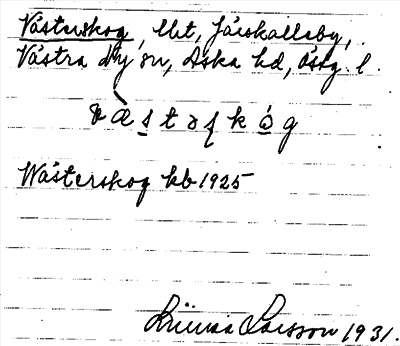 Västerskog, lht, Järskalleby,
Västra Ny sn, Aska hd, Östg. l.
v ä s t ə ʂ k ó g
Wästerskog kb 1925
Linnéa Larsson 1931.